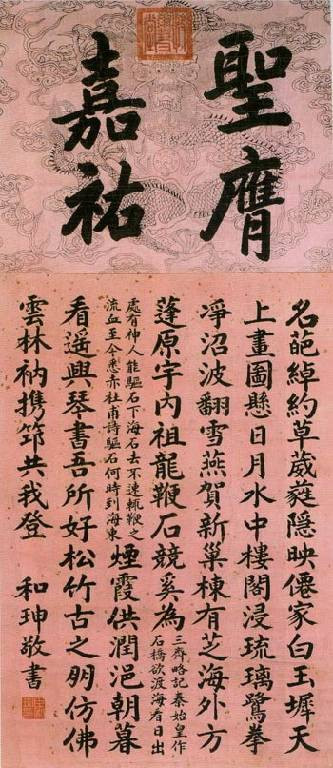 聖膺
嘉祐
名葩綽約草葳蕤隱映僊家白玉墀天
上畫圖懸日月水中樓閣浸琉璃鷺拳
淨沼波翻雪燕賀新巢棟有芝海外方
蓬原宇內祖龍鞭石競奚為
三齊略記秦始皇作
石橋欲渡海看日出
處有神人能驅石下海石去不速輒鞭之
流血至今悉赤杜甫詩驅石何時到海東
煙霞供潤浥朝暮
看遙興琴書吾所好松竹古之朋仿佛
雲林衲攜筇共我登
和珅敬書